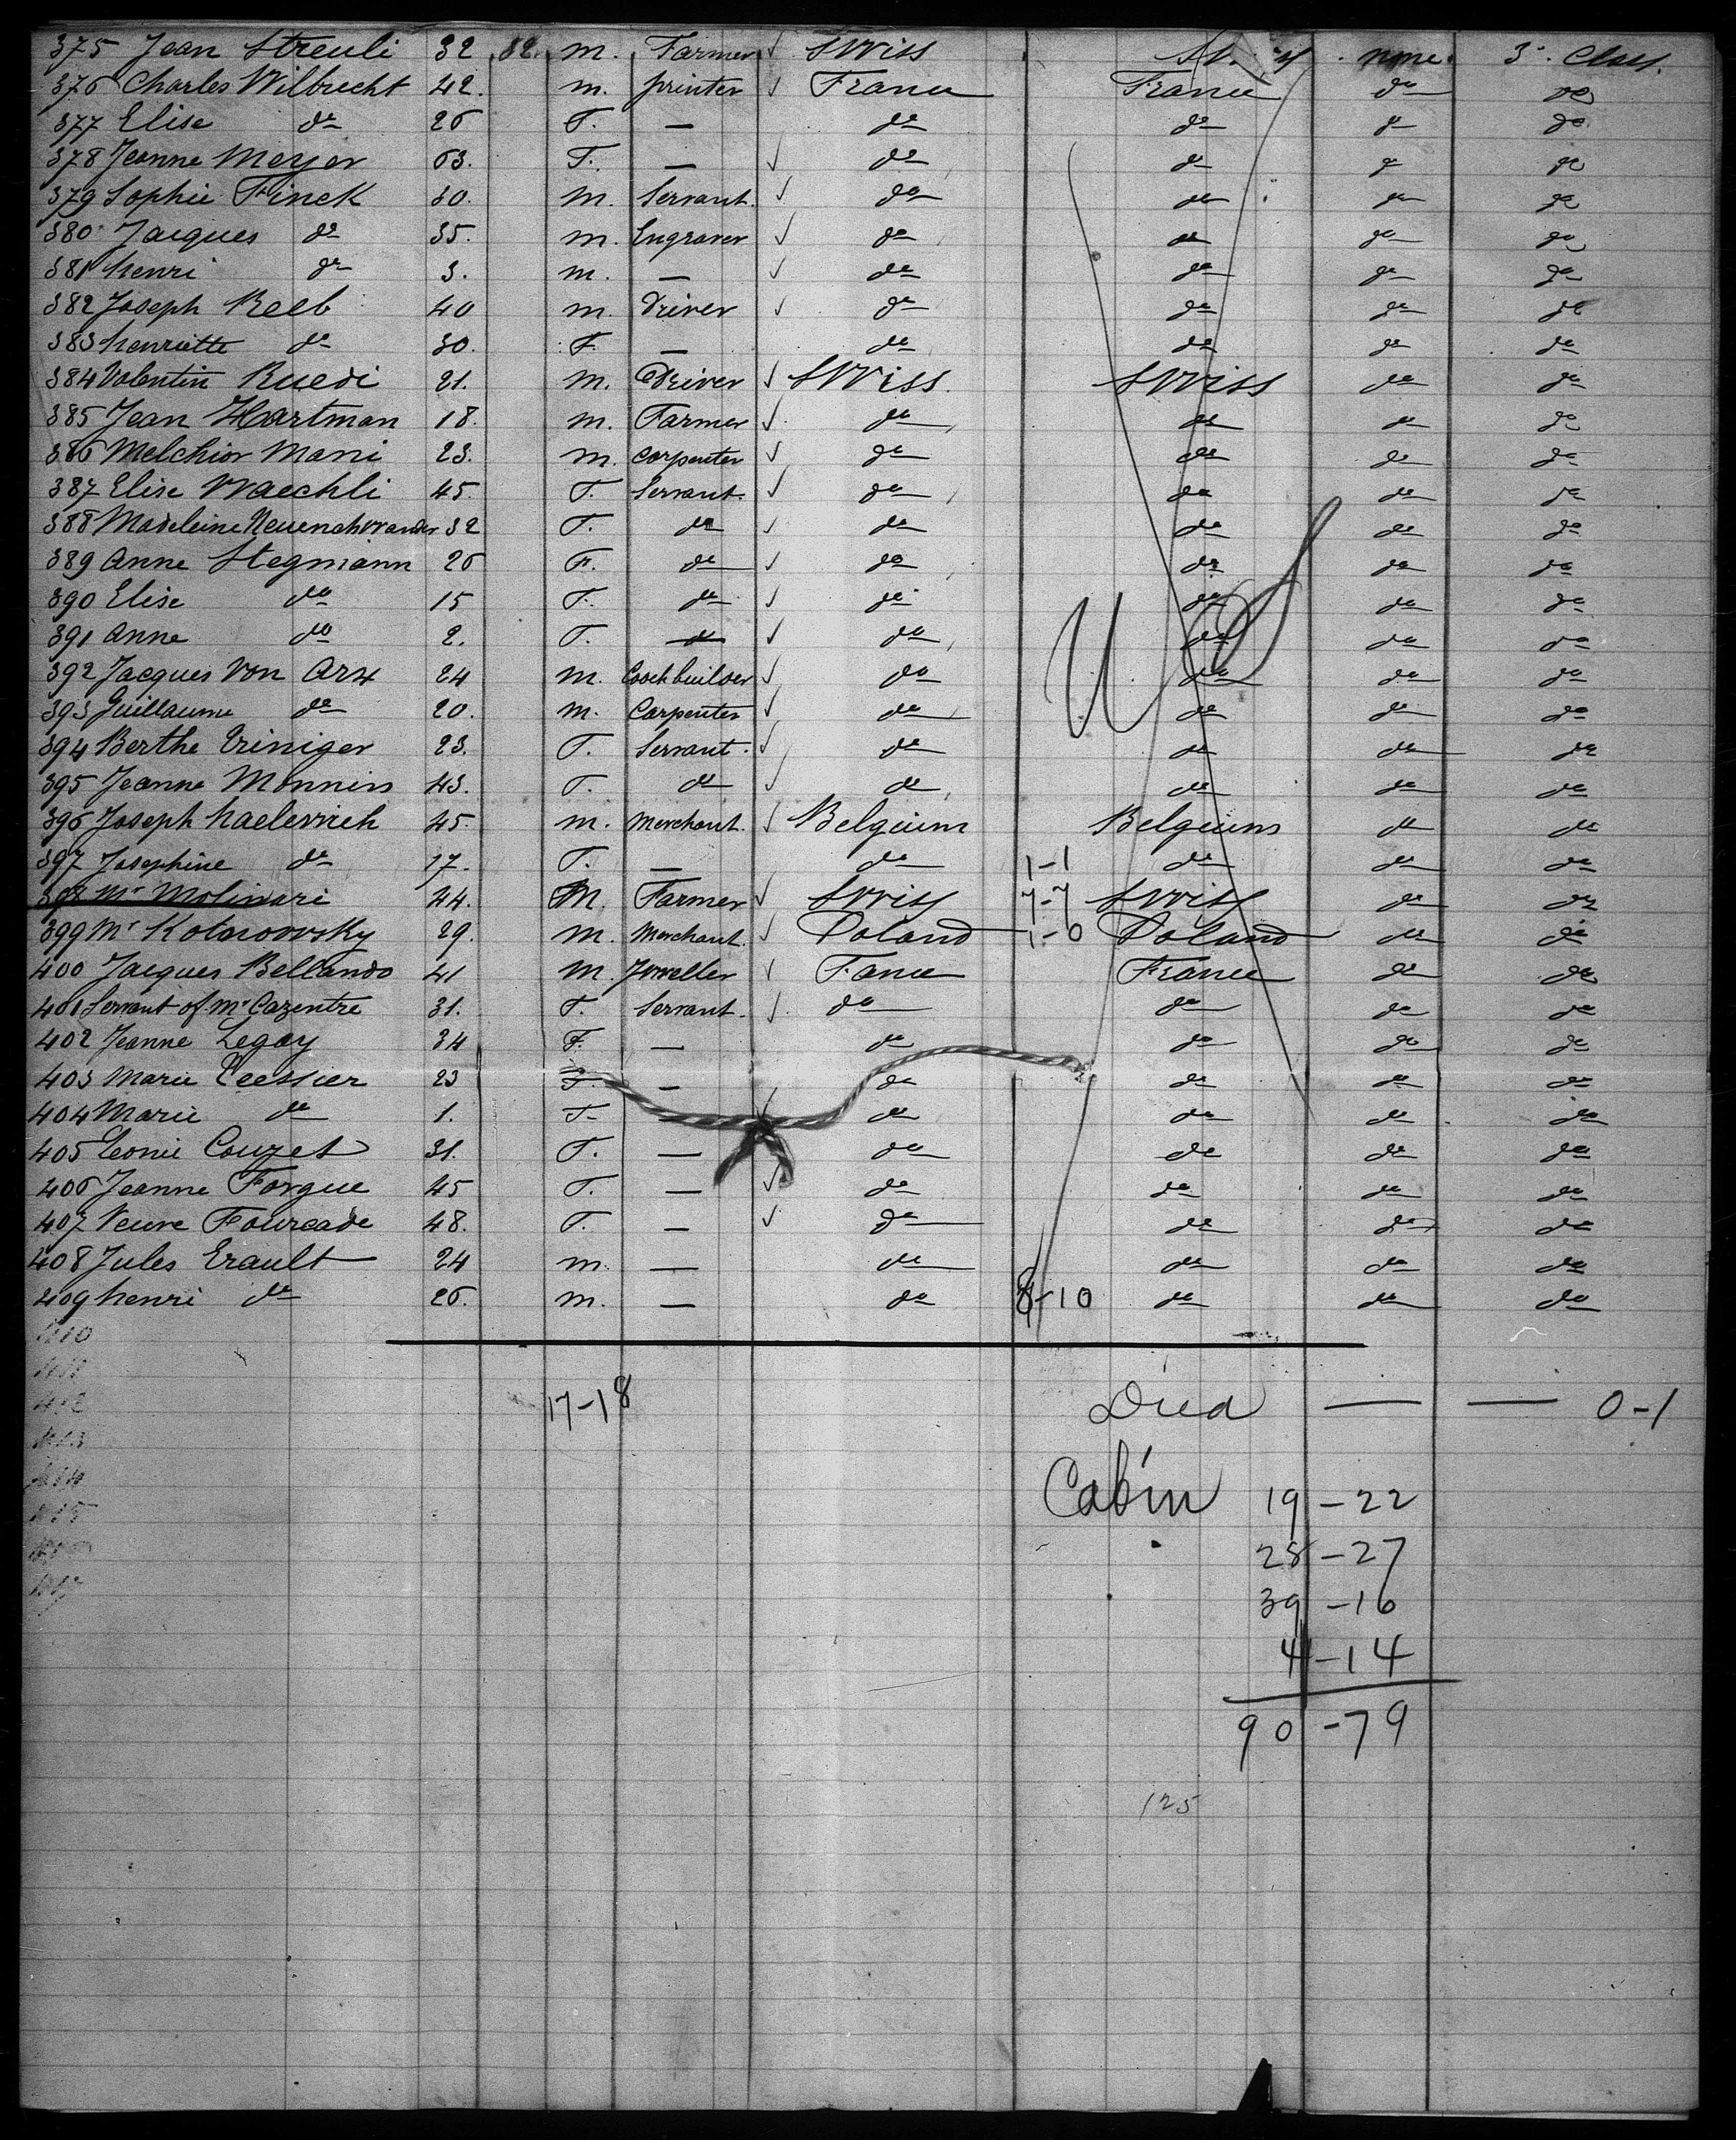 375 Jean Streuli 32 82. m. Farmer Swiss none. 3e. Class.
376 Charles Wilbrecht 42. m. printer France France do do
377 Elise do 26 F. — do do do do
378 Jeanne Meyer 63. F. — do do do do
379 Sophie Finck 30. m. Servant. do do do do
380 Jacques do 35. m. Engraver do do do do
381 henri do 3. m. — do do do do
382 Joseph Reeb 40 m. Driver do do do do
383 henriette do 30. F. — do do do do
384 Valentin Ruedi 21. m. Driver Swiss. Swiss do do
385 Jean Hartman 18. m. Farmer do do do do
386 Melchior Mani 23. m. Carpenter do do do do
387 Elise Waechli 45. F. Servant. do do do do
388 Madeleine Neuenchwander 32 F. do do do do do
389 Anne Stegmann 26 F. do do do do do
390 Elise do 15 F. do do do do do
391 Anne do 2. F. do do do do
392 Jacques Von Arx 24 m. Coachbuilder do do do do
393 Guillaume do 20. m. Carpenter do do do do
394 Berthe Triniger 23. F. Servant. do do do do
395 Jeanne Monnin 43. F. do do do do do
396 Joseph 45. m. Merchant. Belgium Belgium do do
397 Josephine do 17. F. — do 1-1 do do do
398 Mr Molinari 44. M. Farmer Swiss 7-7 Swiss do do
399 Mr Kolnowsky 29. m. Merchant. Poland 1-0 Poland do do
400 Jacques Bellando 41 M. Jeweller France France do do
401 Servant of Mr Cazentre 31. F. Servant. do do do do
402 Jeanne Legay 34 F. — do do do do
403 Marie Teessier 23 F. — do do do do
404 Marie do 1. F. — do do do do
405 Leonie Couzet 31. F. — do do do do
406 Jeanne Forgue 45 F. — do do do do
407 Veuve Fourcade 48. F. — do do do do
408 Jules Erault 24 m. — do do do do
409 henri do 26. m. — do 8-10 do do do
US
410
411
412 17-18 Died — — 0-1
413
414
415 Cabin 19-22
28-27
39-16
4-14
90-79
125